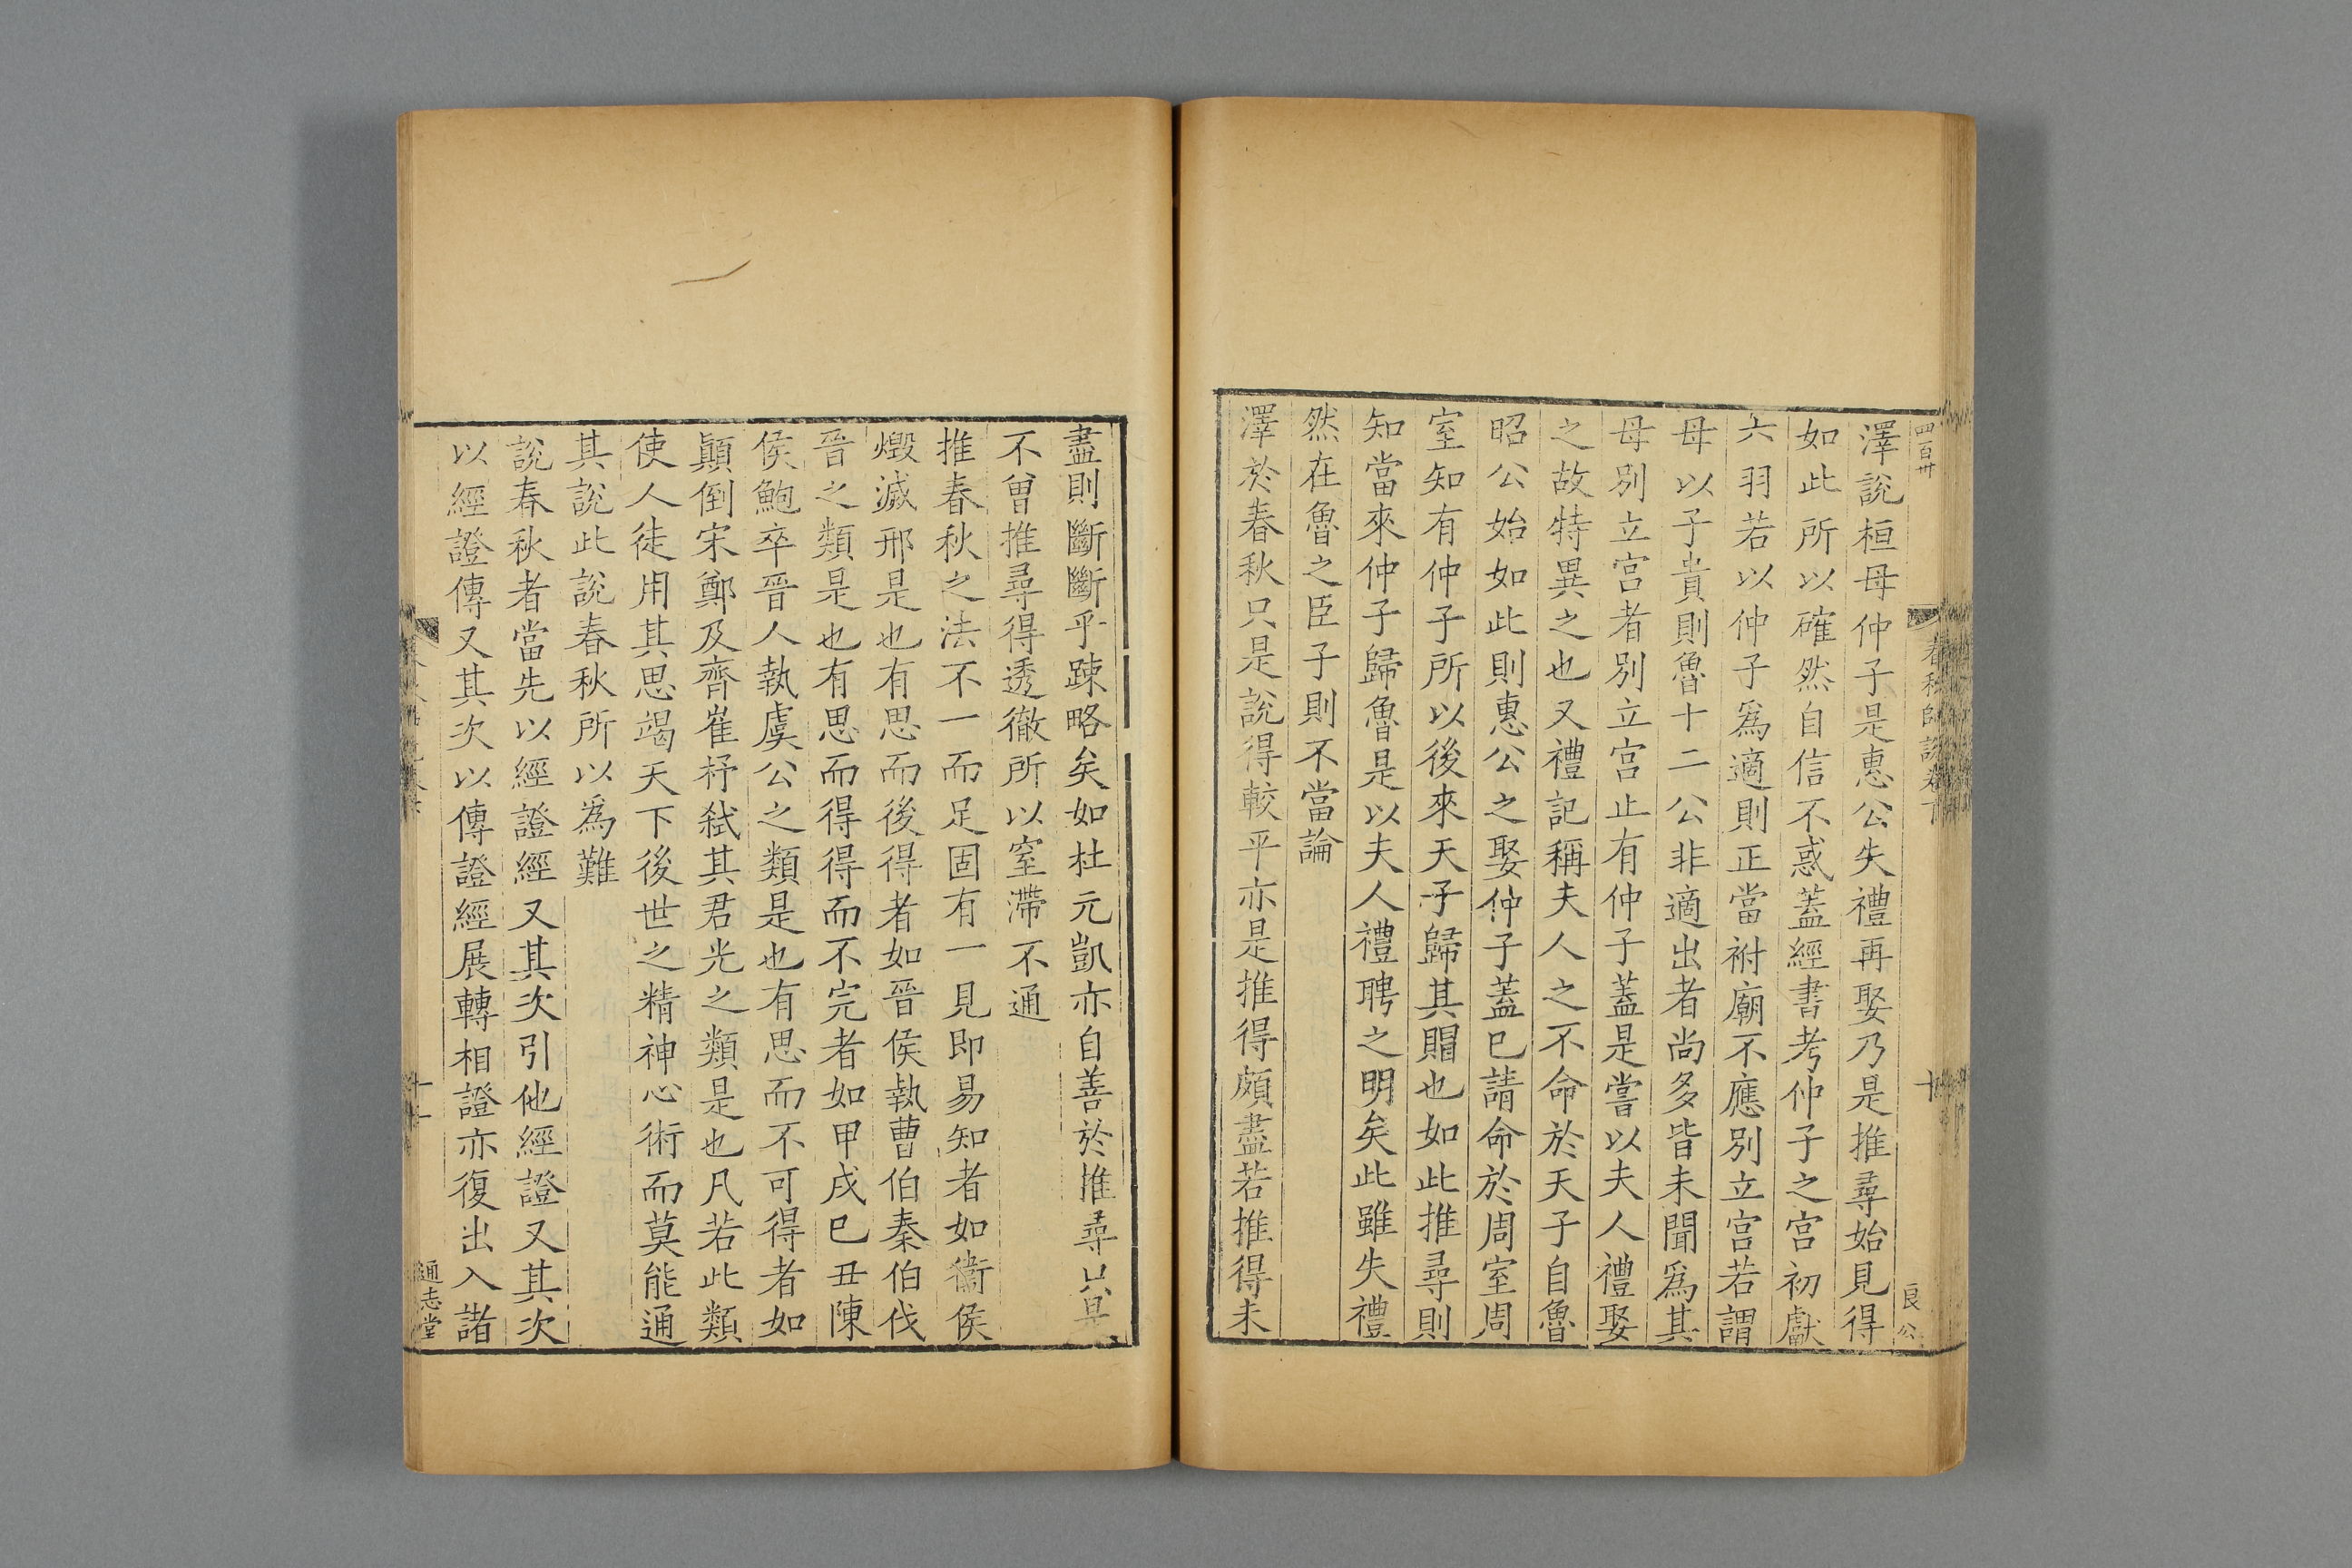 四百卅
春秋師說卷下
十
良
公
澤說桓母仲子是惠公失禮再娶乃是推尋始見得
如此所以確然自信不惑蓋經書考仲子之宮初獻
六羽若以仲子爲適則正當祔廟不應別立宮若謂
母以子貴則魯十二公非適出者尚多皆未聞爲其
母別立宮者別立宮止有仲子蓋是嘗以夫人禮娶
之故特異之也又禮記稱夫人之不命於天子自魯
昭公始如此則惠公之娶仲子蓋已請命於周室周
室知有仲子所以後來天子歸其賵也如此推尋則
知當來仲子歸魯是以夫人禮聘之明矣此雖失禮
然在魯之臣子則不當論
澤於春秋只是說得較平亦是推得頗盡若推得未
盡則斷斷乎踈略矣如杜元凱亦自善於推尋
不曾推尋得透徹所以窒滯不通
推春秋之法不一而足固有一見即易知者如衞侯
燬滅邢是也有思而後得者如晉侯執曹伯秦伯伐
晉之類是也有思而得得而不完者如甲戌已丑陳
侯鮑卒晉人執虞公之類是也有思而不可得者如
顚倒宋鄭及齊崔杼弑其君光之類是也凡若此類
使人徒用其思竭天下後世之精神心術而莫能通
其說此說春秋所以爲難
說春秋者當先以經證經又其次引他經證又其次
以經證傳又其次以傳證經展轉相證亦復出入諸
十一
通志堂